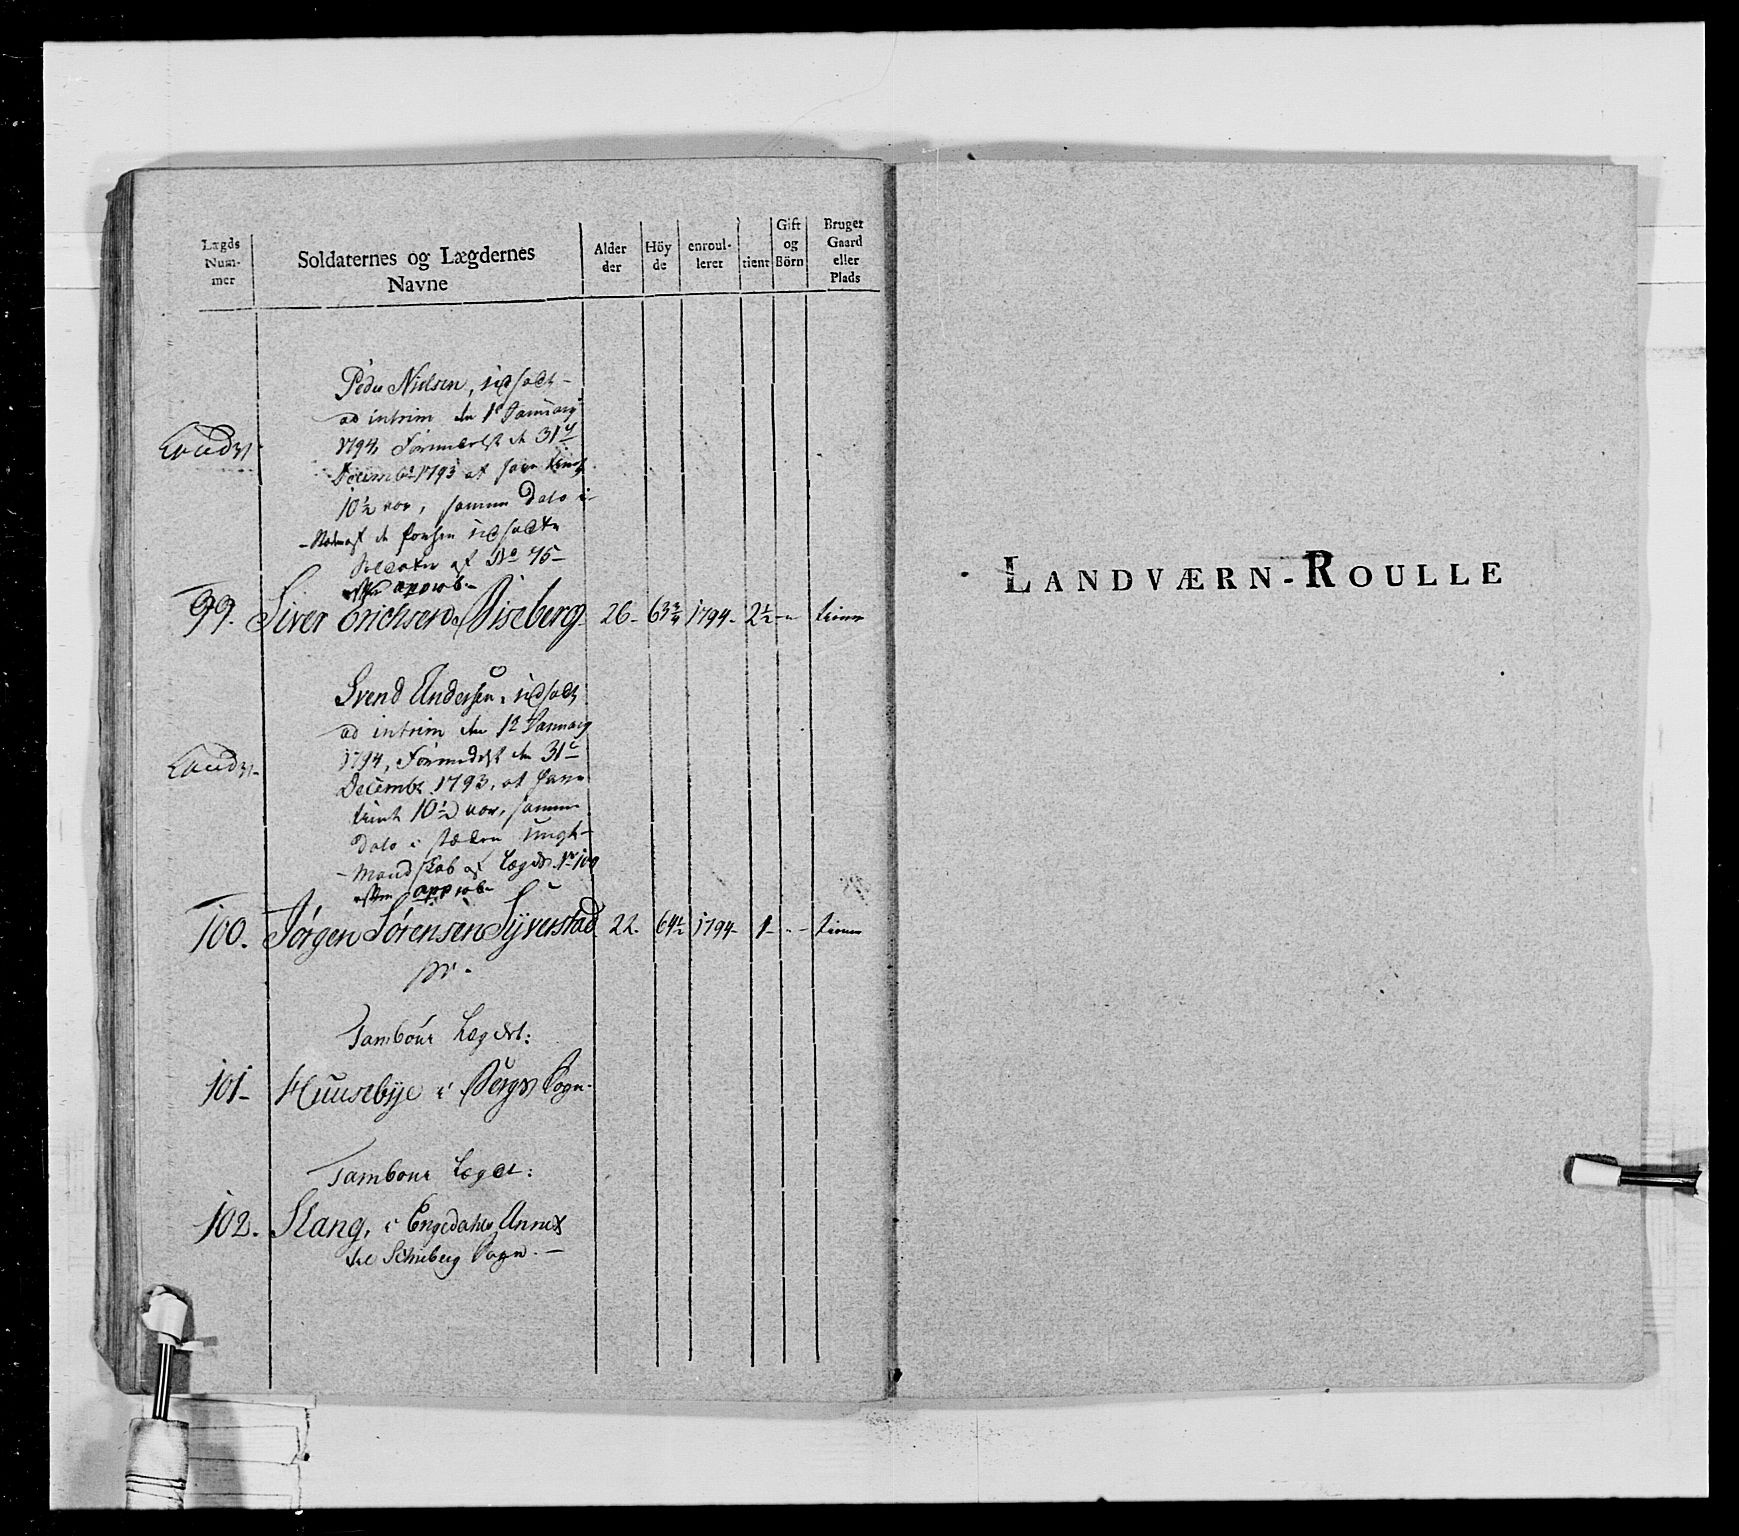 Lægds
Num-
mer
Soldaternes og Lægdernes
Navne
Alder
der
Höy
de
enroul-
leret
tient
Gift
og
Börn
Bruger
Gaard
eller
Plads
Peder Nielsen, udsadt
ad intrim den 1e Januarij
1794, Formedelst den 31te
Decembr 1793 at have tient
10½ aar, samme Dato i-
de forhen udsadte
Soldater af No 75-
approb-
Landv:
99. Siver Erichsen Biseberg 26- 63¾ 1794- 2½ - - tiener
Svend Andersen, udsadt
ad intrim den 1e Januarij
1794, Formedelst den 31te
Decembr 1793, at have
tient 10½ aar, samme
Dato i stæden Ungt-
Mandskab af Lægds No 100
approb-
Landv:
100. Jørgen Sørensen Syverstad 22. 64½ 1794- 1- - - tiener
Tambour Lægdet:
101- Huusebye i Bergs Sogn-
Tambour Lægdet:
102. Stang, i Engedahls Annex
til Schieberg Sogn. -
LANDVÆRN-ROULLE